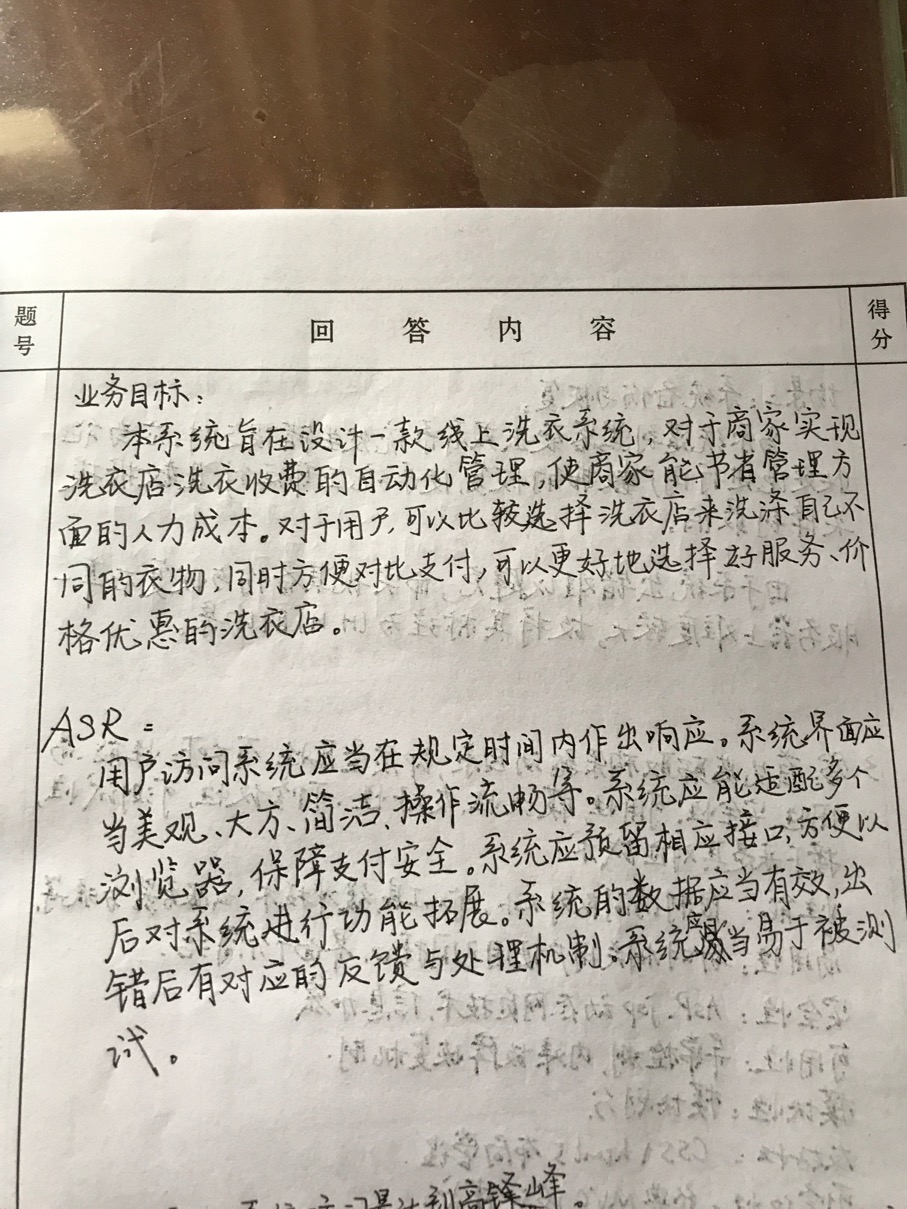 题号 回答内容 得分
业务目标：
本系统旨在设计一款线上洗衣系统，对于商家实现
洗衣店洗衣收费的自动化管理，使商家能节省管理方
面的人力成本。对于用户，可以比较选择洗衣店来洗涤自己不
同的衣物，同时方便对比支付，可以更好地选择好服务、价
格优惠的洗衣店。
ASR：
用户访问系统应当在规定时间内作出响应。系统界面应
当美观、大方、简洁、操作流畅等。系统应能适配多个
浏览器，保障支付安全。系统应预留相应接口，方便以
后对系统进行功能拓展。系统的数据应当有效，出
错后有对应的反馈与处理机制。系统应当易于被测
试。
达到高峰。